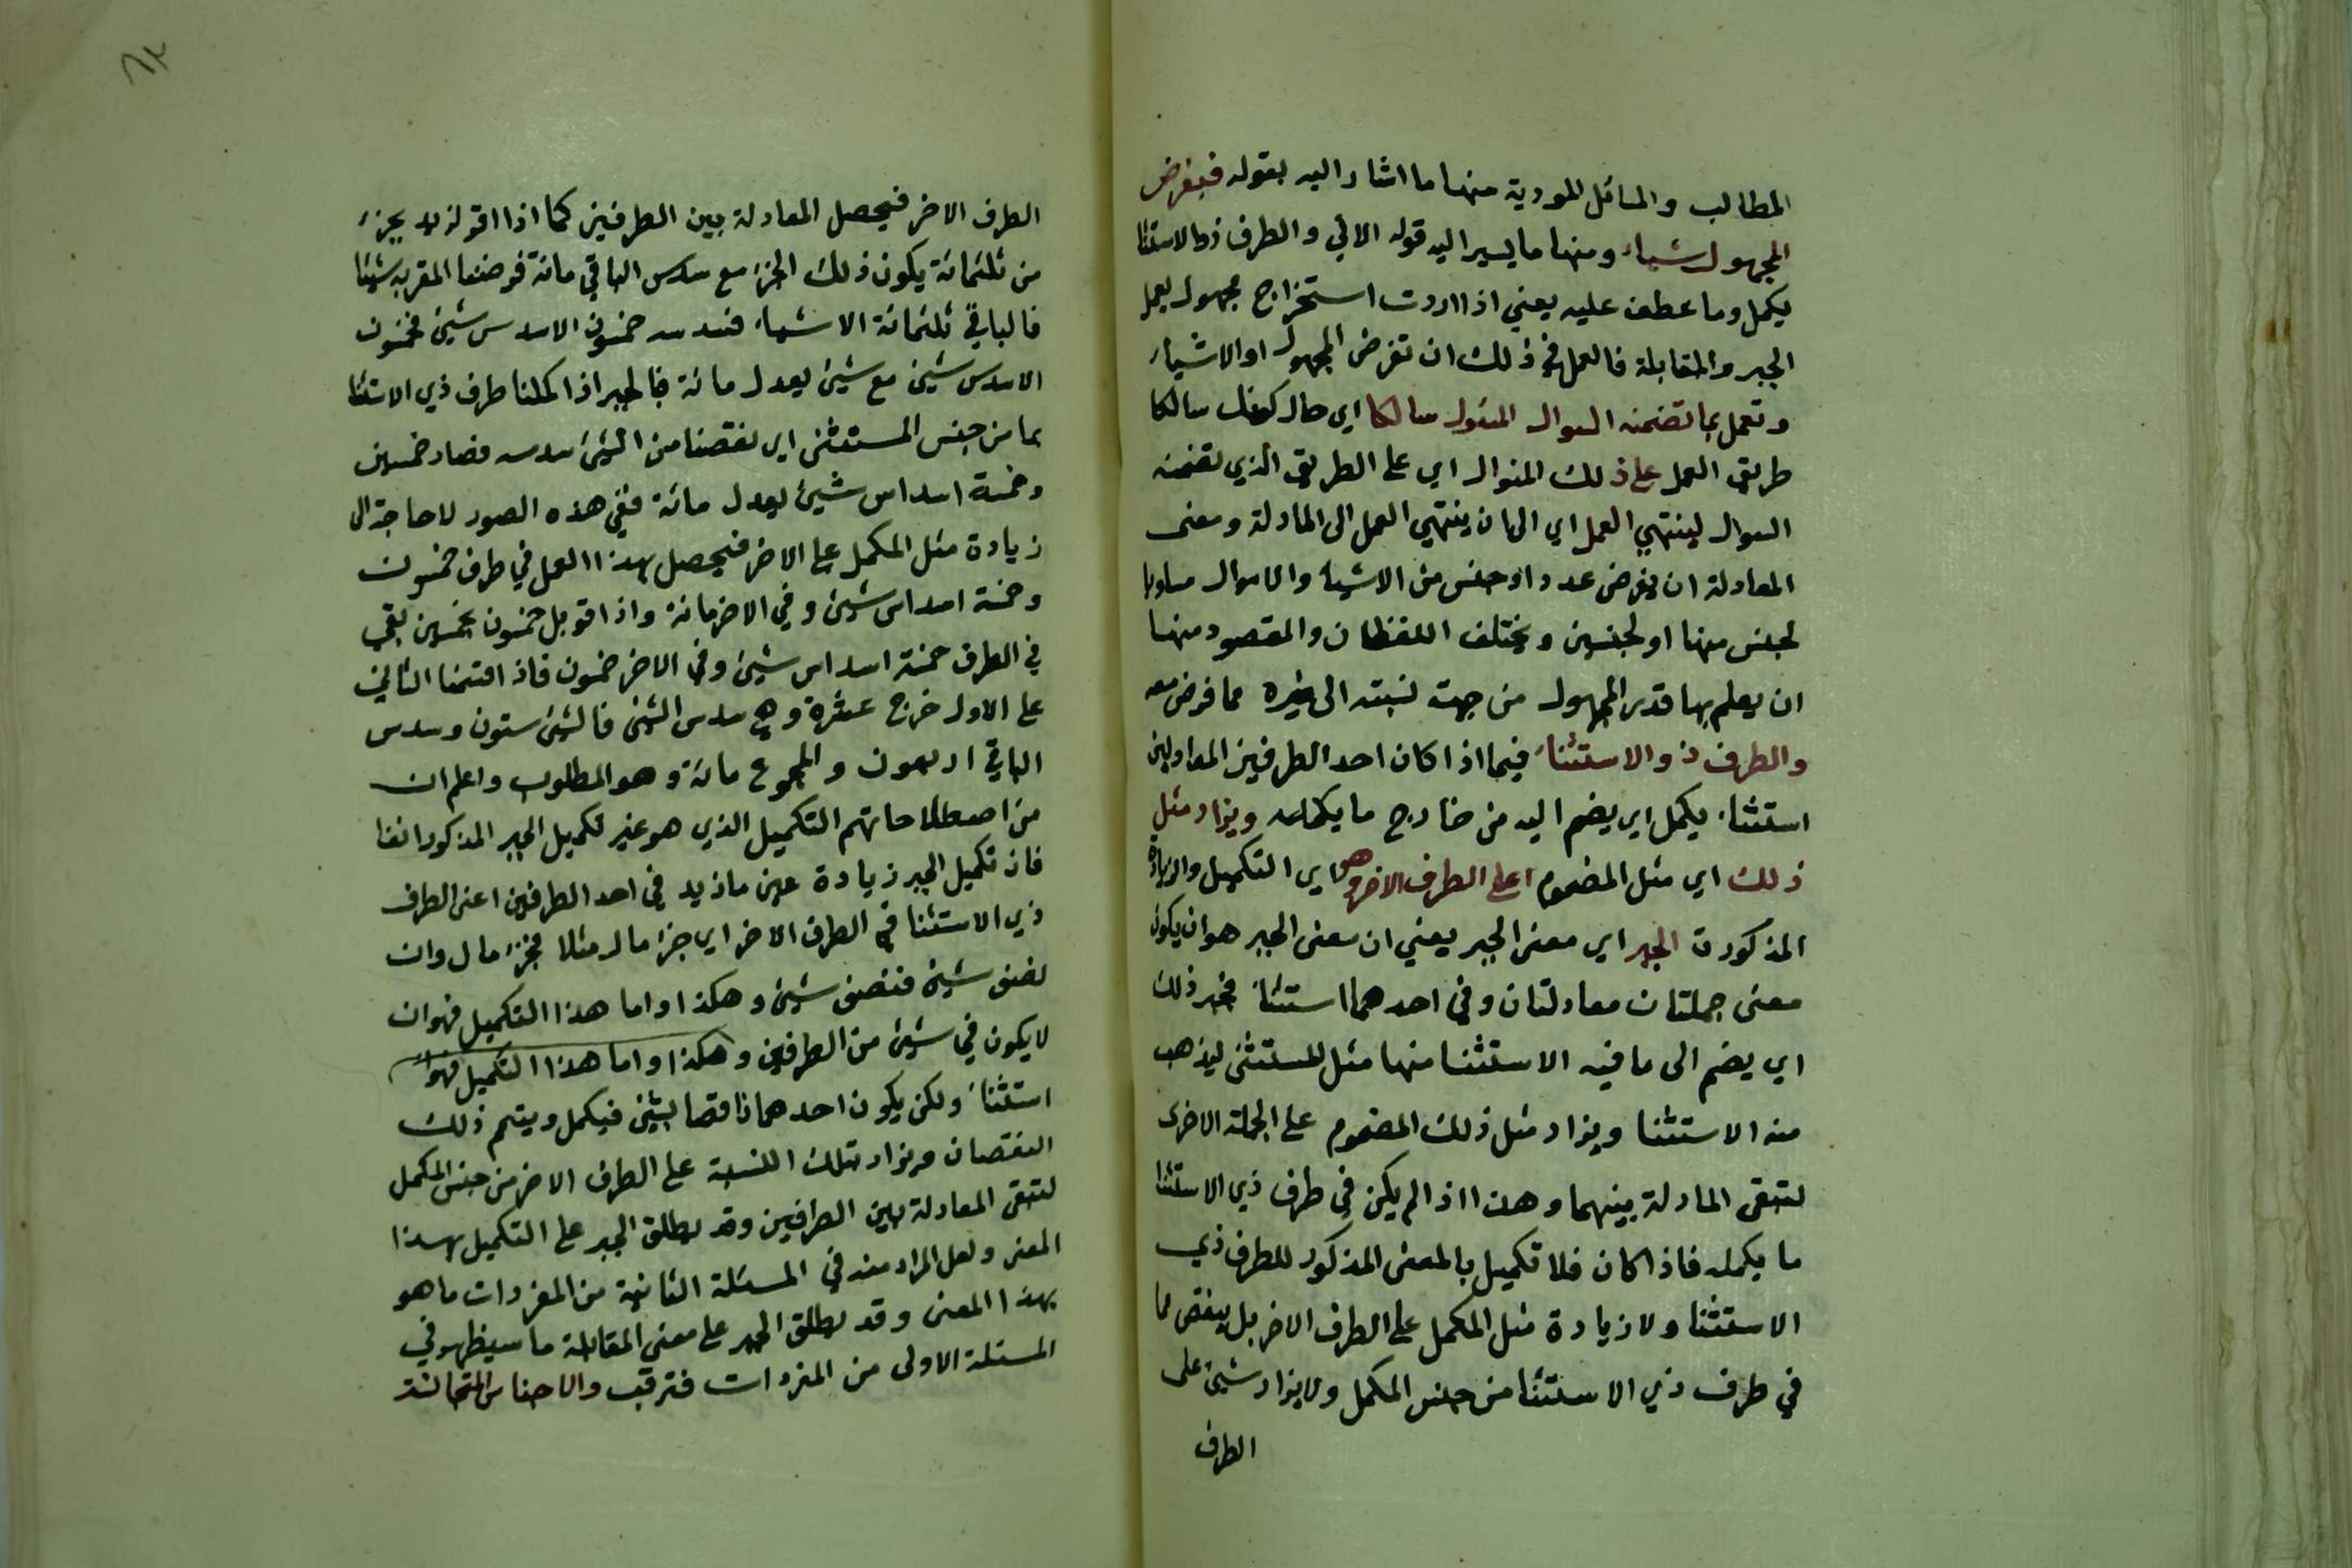 المطالب والمسائل المودية منها ما اشار اليه بقوله فيفرض
المجهول شياء ومنها ما يسير اليه قوله الاتي والطرف ذو الاستثنا
يكمل وما عطف عليه يعني اذا اردت استخراج مجهول بعمل
الجبر والمقابلة فالعمل في ذلك ان تفرض المجهول او الاشياء
وتعمل بما تضمنه السوال المنول سالكا اي حال كونك سالكا
طريق العمل على ذلك المنوال اي على الطريق الذي تضمنه
السوال لينتهي العمل اي الى ان ينتهي العمل الى المادلة ومعنى
المعادلة ان يفرض عدد او جنس من الاشياء والاموال مساويا
لجنس منها او لجنسين ويختلف اللفظان والمقصود منها
ان يعلم بها قدر المجهول من جهت نسبته الى غيره مما فرض معه
والطرف ذو الاستثناء فيما اذا كان احد الطرفين المعادلين
استثناء يكمل اي يضم اليه من خارج ما يكمله ويزاد مثل
ذلك اي مثل المضموم على الطرف الاخر وهو اي التكميل والزيادة
المذكورة الجبر اي معنى الجبر يعني ان معنى الجبر هو ان يكون
معنى جملتان معادلتان وفي احدهما استثناء فيجبر ذلك
اي يضم الى ما فيه الاستثنا منها مثل المستثنى ليذهب
منه الاستثنا ويزاد مثل ذلك المضموم على الجملة الاخرى
لتبقى المادلة بينهما وهذا اذا لم يكن في طرف ذي الاستثنا
ما يكمله فاذا كان فلا تكميل بالمعنى المذكور للطرف ذي
الاستثنا ولا زيادة مثل المكمل على الطرف الاخر بل ينقص مما
في طرف ذي الاستثنا من جنس المكمل ولا يزاد شيئ على
الطرف
٦٢
الطرف الاخر فيحصل المعادلة بين الطرفين كما اذا اقر لزيد بجزء
من ثلثمائة يكون ذلك الجزء مع سدس الباقي مائة فرضنا المقر به شيئا
فالباقي ثلثمائة الا شياء فسدسه خمسون الا سدس شيئ فخمسون
الا سدس شيئ مع شيئ يعدل مائة فبالجبر اذا كملنا طرف ذي الاستثنا
بما من جنس المستثنى اي نقصنا من الشيئ سدسه فصار خمسين
وخمسة اسداس شيئ يعدل مائة ففي هذه الصور لا حاجة الى
زيادة مثل المكمل على الاخر فيحصل بهذا العمل في طرف خمسون
وخمسة اسداس شيئ وفي الاخر مائة واذا قوبل خمسون بخمسين بقي
في الطرف خمسة اسداس شيئ وفي الاخر خمسون فاذا قسمنا الثاني
على الاول خرج عشرة وهي سدس الشيئ فالشيئ ستون وسدس
الباقي اربعون والمجموع مائة وهو المطلوب واعلم ان
من اصطلاحاتهم التكميل الذي هو غير تكميل الجبر المذكور انفا
فان تكميل الجبر زيادة عين ما زيد في احد الطرفين اعني الطرف
ذي الاستثنا في الطرف الاخر اي جزء مال مثلا فجزء مال وان
نصف شيئ فنصف شيئ وهكذا واما هذا التكميل فهو ان
لا يكون في شيئ من الطرفين وهكذا واما هذا التكميل فهو ان
استثناء ولكن يكون احدهما ناقصا بشيئ فيكمل ويتم ذلك
النقصان ويزاد بتلك النسبة على الطرف الاخر من جنس المكمل
لتبقى المعادلة بين الطرافين وقد يطلق الجبر على التكميل بهذا
المعنى ولعل المراد منه في المسئلة الثانية من المفردات ما هو
بهذا المعنى وقد يطلق الجبر على معنى المقابلة ما سيظهر في
المسئلة الاولى من المفردات فترقب والاجناس المتجانسة